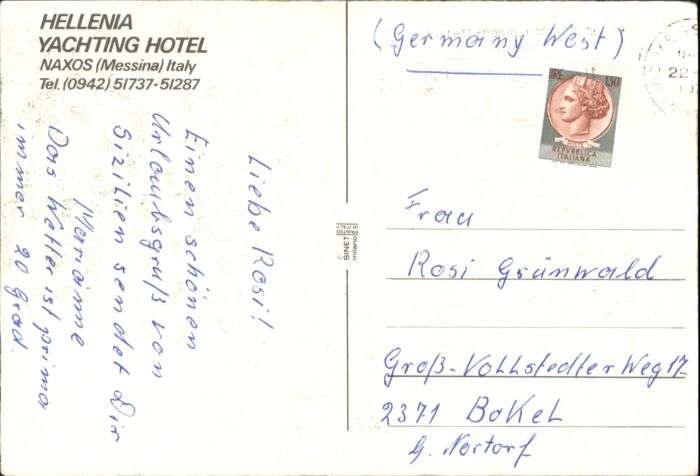 HELLENIA
YACHTING HOTEL
NAXOS (Messina) Italy
Tel. (0942) 51737-51287
Liebe Rosi!
Einen schönen
Urlaubsgruß von
Sizilien sendet Dir
Marianne
Das Wetter ist prima
immer 20 Grad.
SINET
milano
(Germany West)
REPUBBLICA
ITALIANA
22
Frau
Rosi Grünwald
Groß-Vollstedter Weg 17
2371 Bokel
b. Nortorf